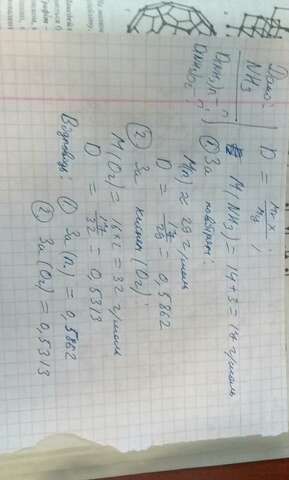 Дано:
NH3
D = Mr x / My ;
M(NH3) = 14 + 3 = 17 г/моль
① За повітрям:
M(п) ≈ 29 г/моль
D = 17/29 = 0,5862
② За киснем (O2):
M(O2) = 16×2 = 32 г/моль
D = 17/32 = 0,5313
Відповідь: ① За (п) = 0,5862
② За (O2) = 0,5313